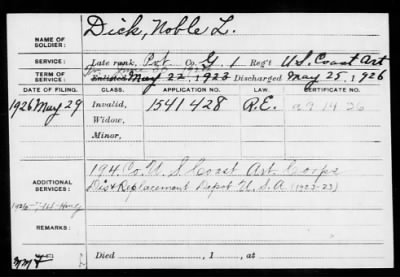 Dick, Noble L.
NAME OF SOLDIER:
SERVICE: Late rank, Pvt Co. G. 1 Reg't U.S. Coast Art
TERM OF SERVICE: Enlisted May 22, 1923 Discharged May 25, 1926
DATE OF FILING. CLASS. APPLICATION NO. LAW. CERTIFICATE NO.
1926 May 29 Invalid, 1541428 R.E. a9 14 26
Widow,
Minor,
ADDITIONAL SERVICES: 194. Co. U.S. Coast Art. Corps
Dis & Replacement Depot U.S.A (1922-23)
REMARKS:
Died , 1 , at